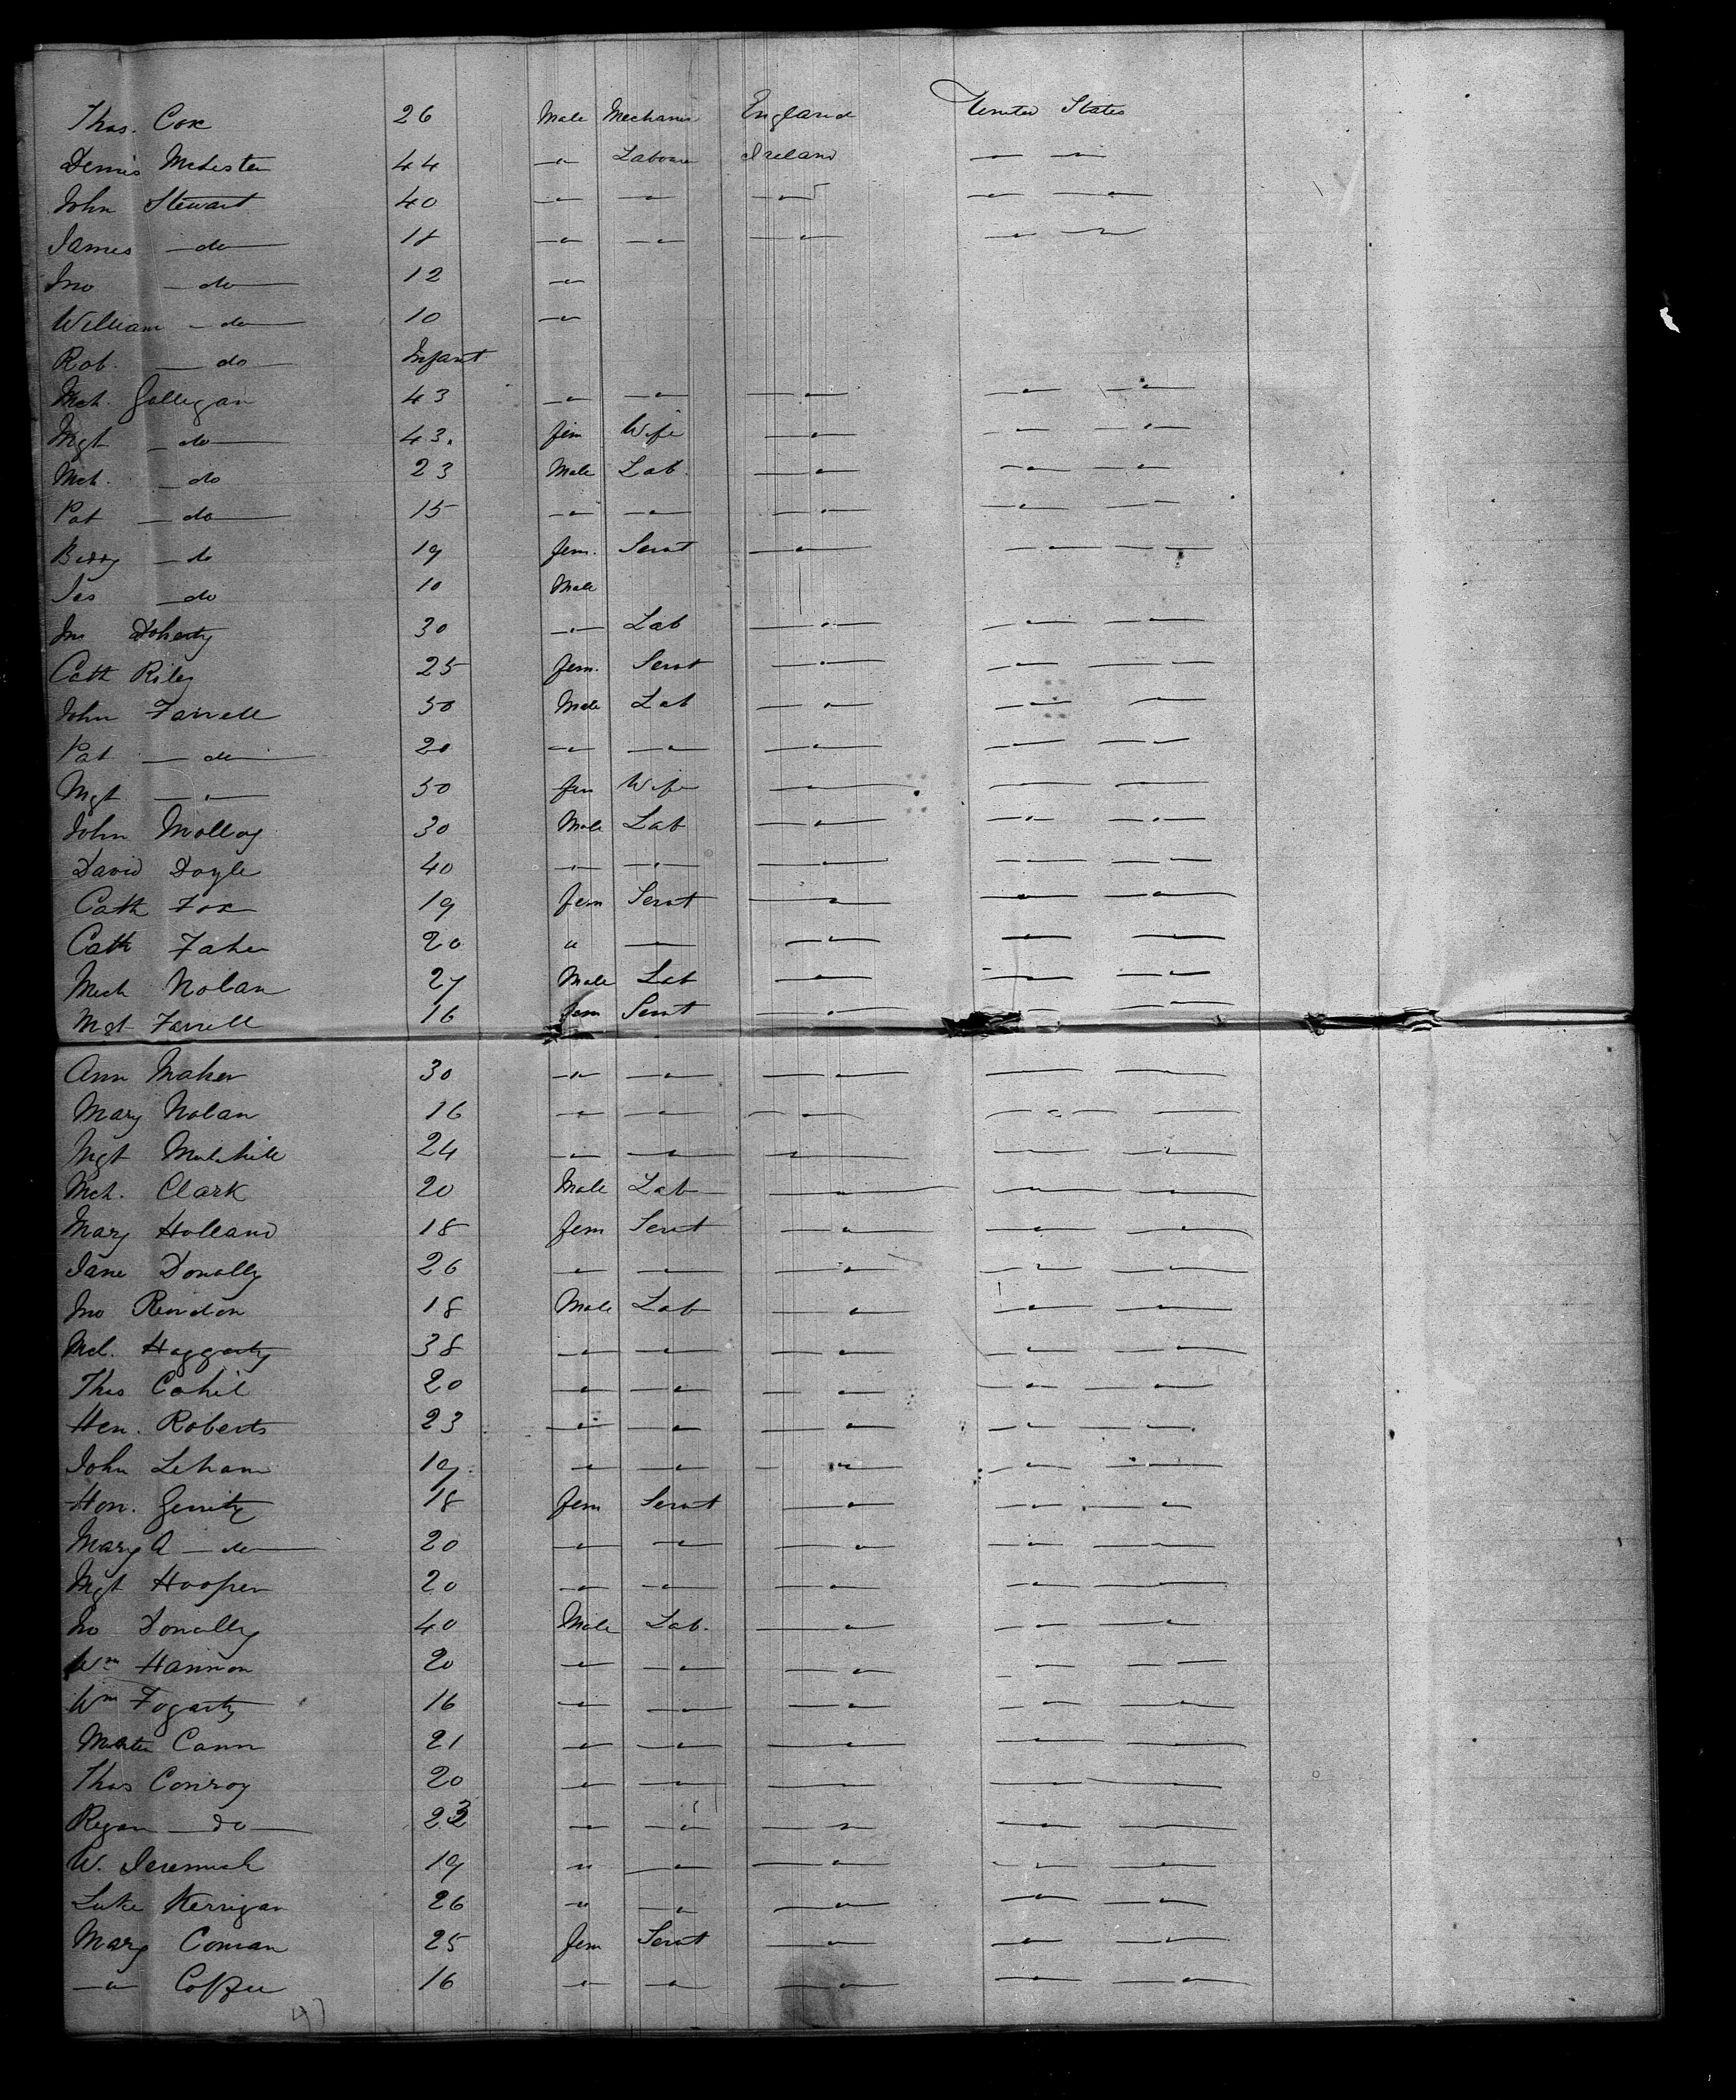 Thos. Cox 26 Male Mechanic England United States
Dennis 44 — " Labourer Ireland — " —
John Stewart 40 — " — — " — — " — — " — — " —
James — do — 18 — " — — " — — " — — " — — " —
Jno — do — 12 — " —
William — do — 10 — " —
Rob. — do — Infant
Mch. Galligan 43 — " — — " — — " — — " — — " —
Mgt — do — 43. fem Wife — " — — " — — " —
Mch. — do 23 Male Lab. — " — — " — — " —
Pat — do — 15 — " — — " — — " — — " — —
Biddy — do 19 fem. Servt — " — — " — — " —
Jas — do 10 Male
Jno Doherty 30 — " — Lab — " — — " — — " —
Cath Riley 25 fem. Servt — " — — " — — —
John Farrell 50 Male Lab — " — — " — —
Pat — do — 20 — " — — " — — " — — " — — " —
Mgt — " — 50 fem Wife — " — — — " —
John Molloy 30 Male Lab — " — — " — — " —
David Doyle 40 — " — — " — — " — — " — — " —
Cath Fox 19 fem Servt — " — — " — — " —
Cath 20 " — " — — " — — " — — " —
Mich Nolan 27 Male Lab — " — — " — — " —
Mgt Farrell 16 fem Servt — " — — — " —
Ann Maher 30 — " — — " — — " — — —
Mary Nolan 16 — " — — " — — " — — " — —
Mgt Mulchill 24 — " — — " — — " — — " — — " —
Mch. Clark 20 Male Lab — " — — " — — " —
Mary Holland 18 fem Servt — " — — " — — " —
Jane Donolly 26 — " — — " — — " — — " — — " —
Jno Reardon 18 Male Lab — " — — " — — " —
Mcl. Haggarty 38 — " — — " — — " — — " — — " —
Thos Cahil 20 — " — — " — — " — — " — — " —
Hen. Roberts 23 — " — — " — — " — — " — — " —
John 19 — " — — " — — " — — " — — " —
Hon. Gerrity 18 fem Servt — " — — " — — " —
Mary A — do — 20 — " — — " — — " — — " — — " —
Mgt Hooper 20 — " — — " — — " — — " — —
Jno Donolly 40 Male Lab. — " — — " — — " —
Wm Hannon 20 — " — — " — — " — — " — — " —
Wm Fogarty 16 — " — — " — — " — — " — — " —
Cann 21 — " — — " — — " — — " — — " —
Thos Conroy 20 — " — — " — — " — — " — — " —
— do — — " — — " — — " — — " — — " —
W. Jeremiah 19 " — " — — " — — " — — " —
Luke Kerrigan 26 — " — — " — — " — — " — — " —
Mary Conran 25 fem Servt — " — — " — — " —
— " — Coffee 16 — " — — " — — " — — " — — " —